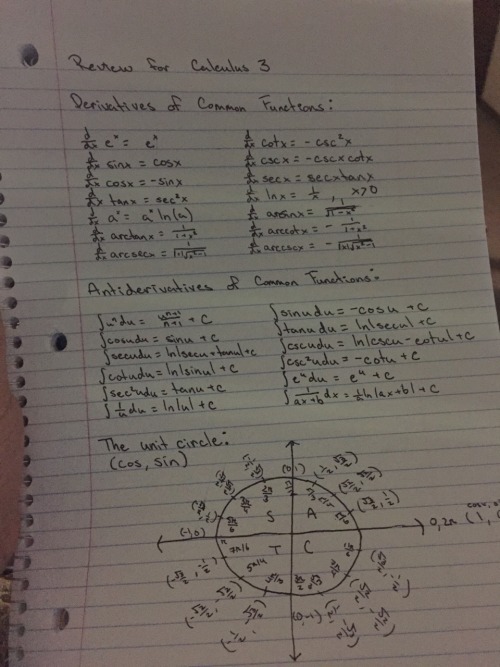 Review for Calculus 3
Derivatives of Common Functions:
d/dx e^x = e^x
d/dx sinx = cosx
d/dx cosx = -sinx
d/dx tanx = sec²x
d/dx a^x = a^x ln(a)
d/dx arctanx = 1/(1+x²)
d/dx arcsecx = 1/(|x|√(x²-1))
d/dx cotx = -csc²x
d/dx cscx = -cscxcotx
d/dx secx = secxtanx
d/dx lnx = 1/x, x>0
d/dx arcsinx = 1/√(1-x²)
d/dx arccotx = - 1/(1+x²)
d/dx arccscx = - 1/(|x|√(x²-1))
Antiderivatives of Common Functions:
∫u^n du = u^(n+1)/(n+1) + C
∫cosudu = sinu + C
∫secudu = ln|secu+tanu|+c
∫cotudu = ln|sinu| + C
∫sec²udu = tanu + C
∫1/u du = ln|u| + C
∫sinudu = -cosu + C
∫tanudu = ln|secu| + C
∫cscudu = ln|cscu - cotu| + C
∫csc²udu = -cotu + C
∫e^u du = e^u + C
∫1/(ax+b) dx = 1/a ln|ax+b| + C
The unit circle:
(cos, sin)
(0,1)
S A
(-1,0) π
0, 2π
T C
7π/6
5π/4